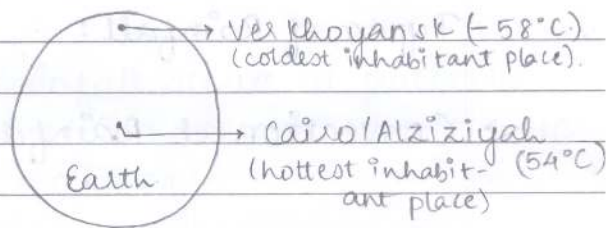 Verkhoyansk (-58°C.)
(coldest inhabitant place).
Cairo/Alziziyah
(hottest inhabit- (54°C)
ant place)
Earth